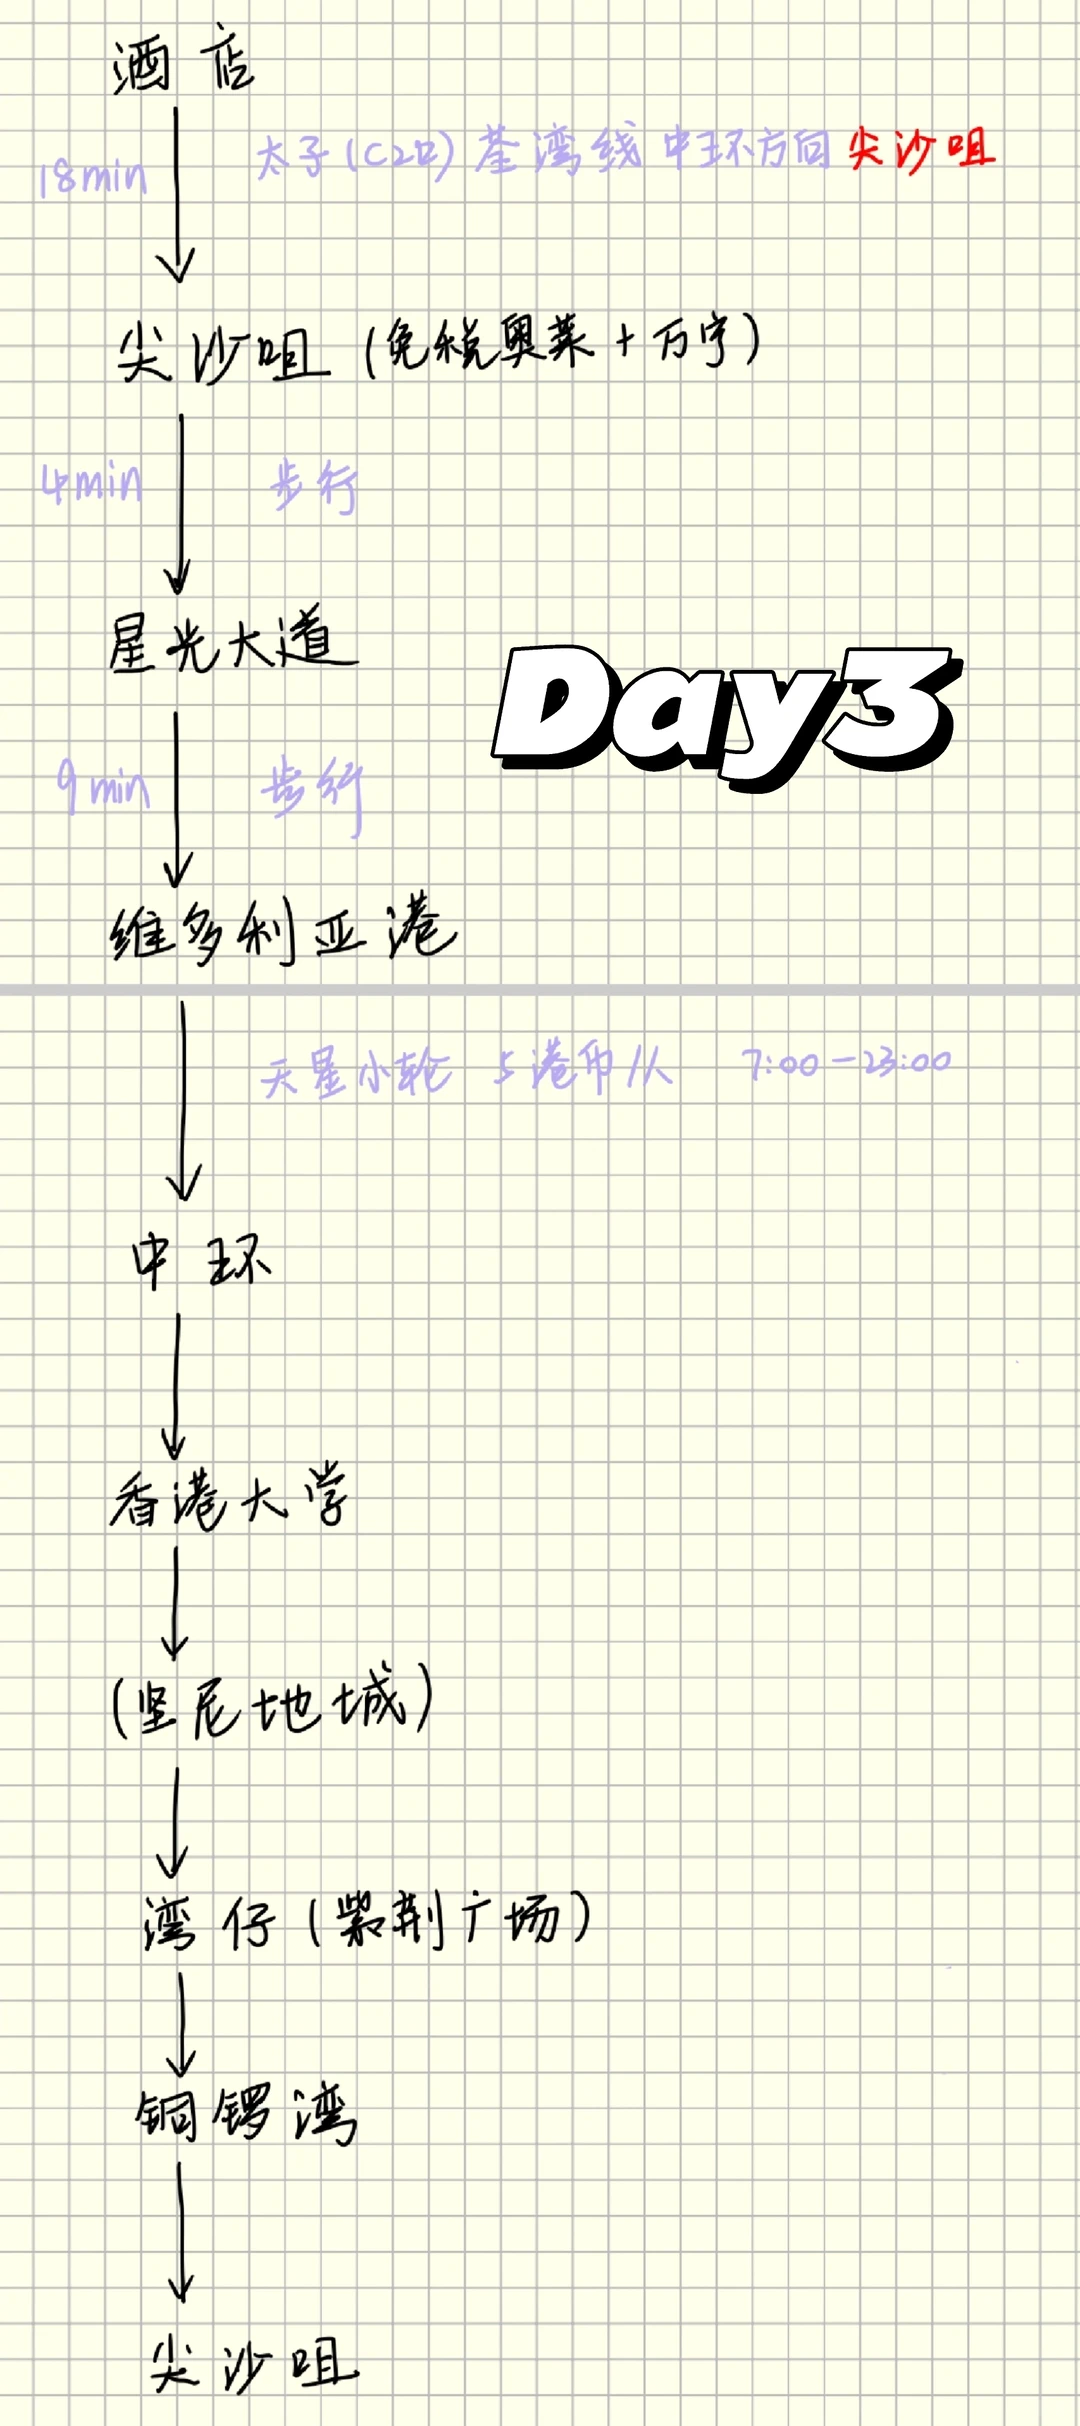 酒店
18min 太子(C2口) 荃湾线 中环方向 尖沙咀
尖沙咀 (免税奥莱+万宁)
4min 步行
星光大道
Day3
9min 步行
维多利亚港
天星小轮 5港币/人 7:00-23:00
中环
香港大学
(坚尼地城)
湾仔(紫荆广场)
铜锣湾
尖沙咀